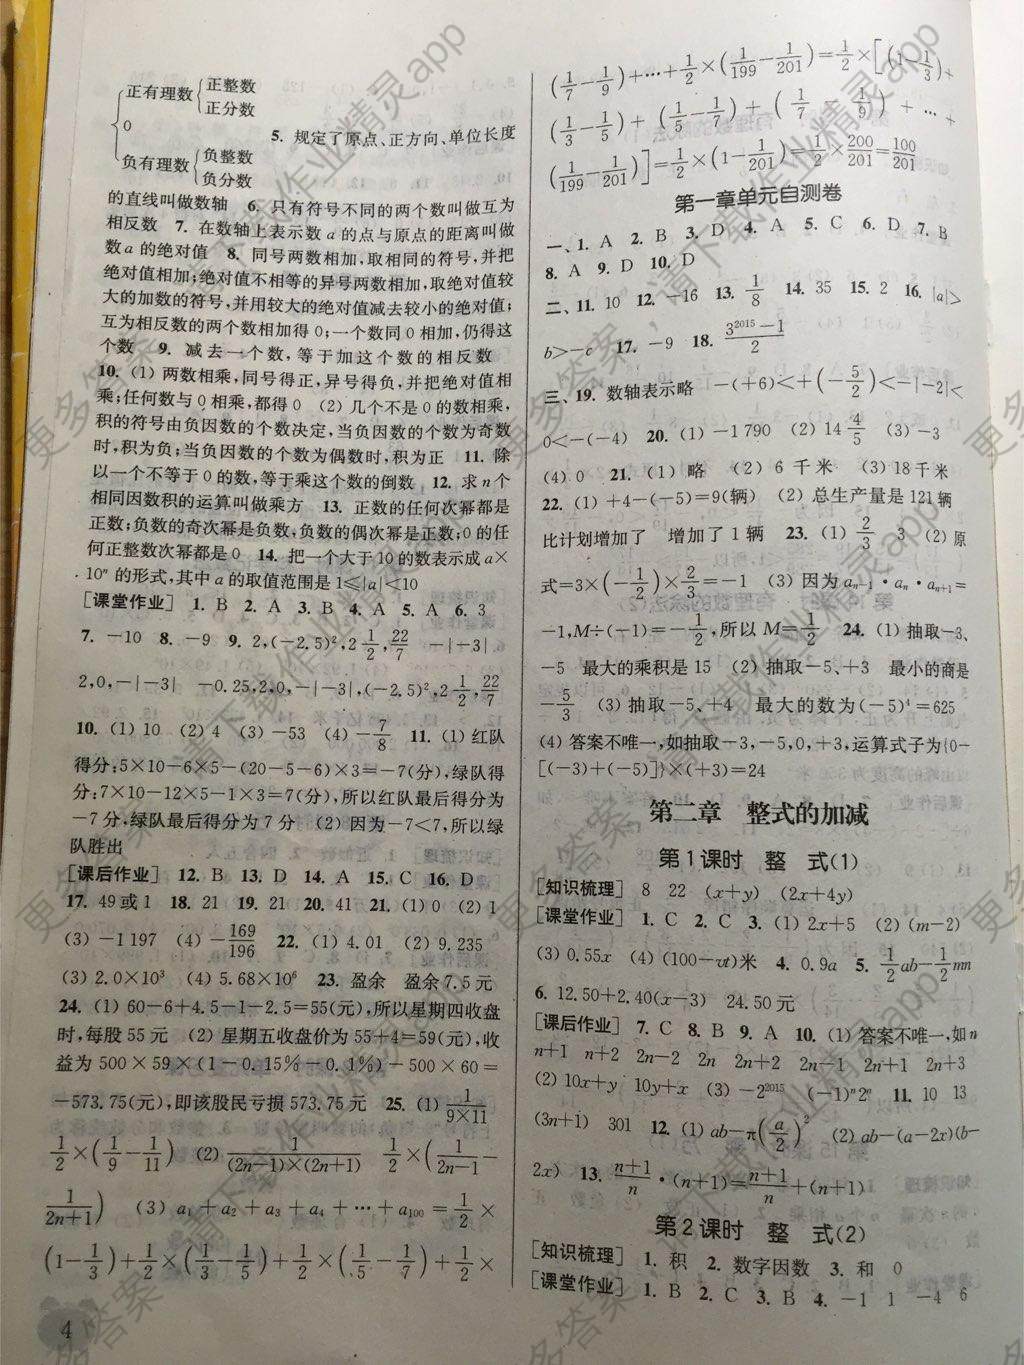 正有理数{正整数
正分数
0
负有理数{负整数
负分数
5. 规定了原点、正方向、单位长度
的直线叫做数轴 6. 只有符号不同的两个数叫做互为
相反数 7. 在数轴上表示数 a 的点与原点的距离叫做
数 a 的绝对值 8. 同号两数相加,取相同的符号,并把
绝对值相加;绝对值不相等的异号两数相加,取绝对值较
大的加数的符号,并用较大的绝对值减去较小的绝对值;
互为相反数的两个数相加得 0;一个数同 0 相加,仍得这
个数 9. 减去一个数,等于加这个数的相反数
10. (1) 两数相乘,同号得正,异号得负,并把绝对值相
乘;任何数与 0 相乘,都得 0 (2) 几个不是 0 的数相乘,
积的符号由负因数的个数决定,当负因数的个数为奇数
时,积为负;当负因数的个数为偶数时,积为正 11. 除
以一个不等于 0 的数,等于乘这个数的倒数 12. 求 n 个
相同因数积的运算叫做乘方 13. 正数的任何次幂都是
正数;负数的奇次幂是负数,负数的偶次幂是正数;0 的任
何正整数次幂都是 0 14. 把一个大于 10 的数表示成 a×
10ⁿ 的形式,其中 a 的取值范围是 1≤|a|<10
[课堂作业] 1. B 2. A 3. B 4. A 5. A 6. 3
7. －10 8. －9 9. 2,(－2.5)²,2 1/2,22/7 －|－3|
2,0,－|－3| －0.25,2,0,－|－3|,(－2.5)²,2 1/2,22/7
10. (1) 10 (2) 4 (3) －53 (4) －7/8 11. (1) 红队
得分:5×10－6×5－(20－5－6)×3=－7(分),绿队得
分:7×10－12×5－1×3=7(分),所以红队最后得分为
－7 分,绿队最后得分为 7 分 (2) 因为－7<7,所以绿
队胜出
[课后作业] 12. B 13. D 14. A 15. C 16. D
17. 49或1 18. 21 19. 21 20. 41 21. (1) 0 (2) 1
(3) －1 197 (4) －169/196 22. (1) 4.01 (2) 9.235
(3) 2.0×10³ (4) 5.68×10⁶ 23. 盈余 盈余 7.5 元
24. (1) 60－6+4.5－1－2.5=55(元),所以星期四收盘
时,每股 55 元 (2) 星期五收盘价为 55+4=59(元),收
益为 500×59×(1－0.15%－0.1%)－500×60=
－573.75(元),即该股民亏损 573.75 元 25. (1) 1/(9×11)
1/2×(1/9－1/11) (2) 1/((2n－1)×(2n+1)) 1/2×(1/(2n－1)－
1/(2n+1)) (3) a₁+a₂+a₃+a₄+…+a₁₀₀=1/2×
(1－1/3)+1/2×(1/3－1/5)+1/2×(1/5－1/7)+1/2×
4
(1/7－1/9)+…+1/2×(1/199－1/201)=1/2×[(1－1/3)+
(1/3－1/5)+(1/5－1/7)+(1/7 1/9)+…+
(1/199－1/201)]=1/2×(1－1/201)=1/2×200/201=100/201
第一章单元自测卷
一、1. A 2. B 3. D 4. A 5. C 6. D 7. B
8. A 9. D 10. D
二、11. 10 12. －16 13. 1/8 14. 35 15. 2 16. |a|>
b>－c 17. －9 18. (3²⁰¹⁵－1)/2
三、19. 数轴表示略 －(+6)<+(－5/2)<－|－2|<
0<－(－4) 20. (1) －1 790 (2) 14 4/5 (3) －3
(4) 0 21. (1) 略 (2) 6 千米 (3) 18千米
22. (1) +4－(－5)=9(辆) (2) 总生产量是 121辆
比计划增加了 增加了 1 辆 23. (1) 2/3 3 (2) 原
式=3×(－1/2)×2/3=－1 (3) 因为 aₙ₋₁·aₙ·aₙ₊₁=
－1,M÷(－1)=－1/2,所以 M=1/2 24. (1) 抽取－3、
－5 最大的乘积是 15 (2) 抽取－5、+3 最小的商是
－5/3 (3) 抽取－5、+4 最大的数为(－5)⁴=625
(4) 答案不唯一,如抽取－3,－5,0,+3,运算式子为{0－
[(－3)+(－5)]}×(+3)=24
第二章 整式的加减
第 1 课时 整 式(1)
[知识梳理] 8 22 (x+y) (2x+4y)
[课堂作业] 1. C 2. C 3. (1) 2x+5 (2) (m－2)
(3) 0.55x (4) (100－vt)米 4. 0.9a 5. 1/2ab－1/2mn
6. 12.50+2.40(x－3) 24.50 元
[课后作业] 7. C 8. B 9. A 10. (1) 答案不唯一,如 n
n+1 n+2 2n－2 2n 2n+2 2n－1 2n+1 2n+3
(2) 10x+y 10y+x (3) －2²⁰¹⁵ (－1)ⁿ2ⁿ 11. 10 13
(3n+1) 301 12. (1) ab－π(a/2)² (2) ab－(a－2x)(b－
2x) 13. (n+1)/n·(n+1)=(n+1)/n+(n+1)
第 2 课时 整 式(2)
[知识梳理] 1. 积 2. 数字因数 3. 和 0
[课堂作业] 1. B 2. C 3. B 4. －1 1 －4 6
更多答案,请下载作业精灵app